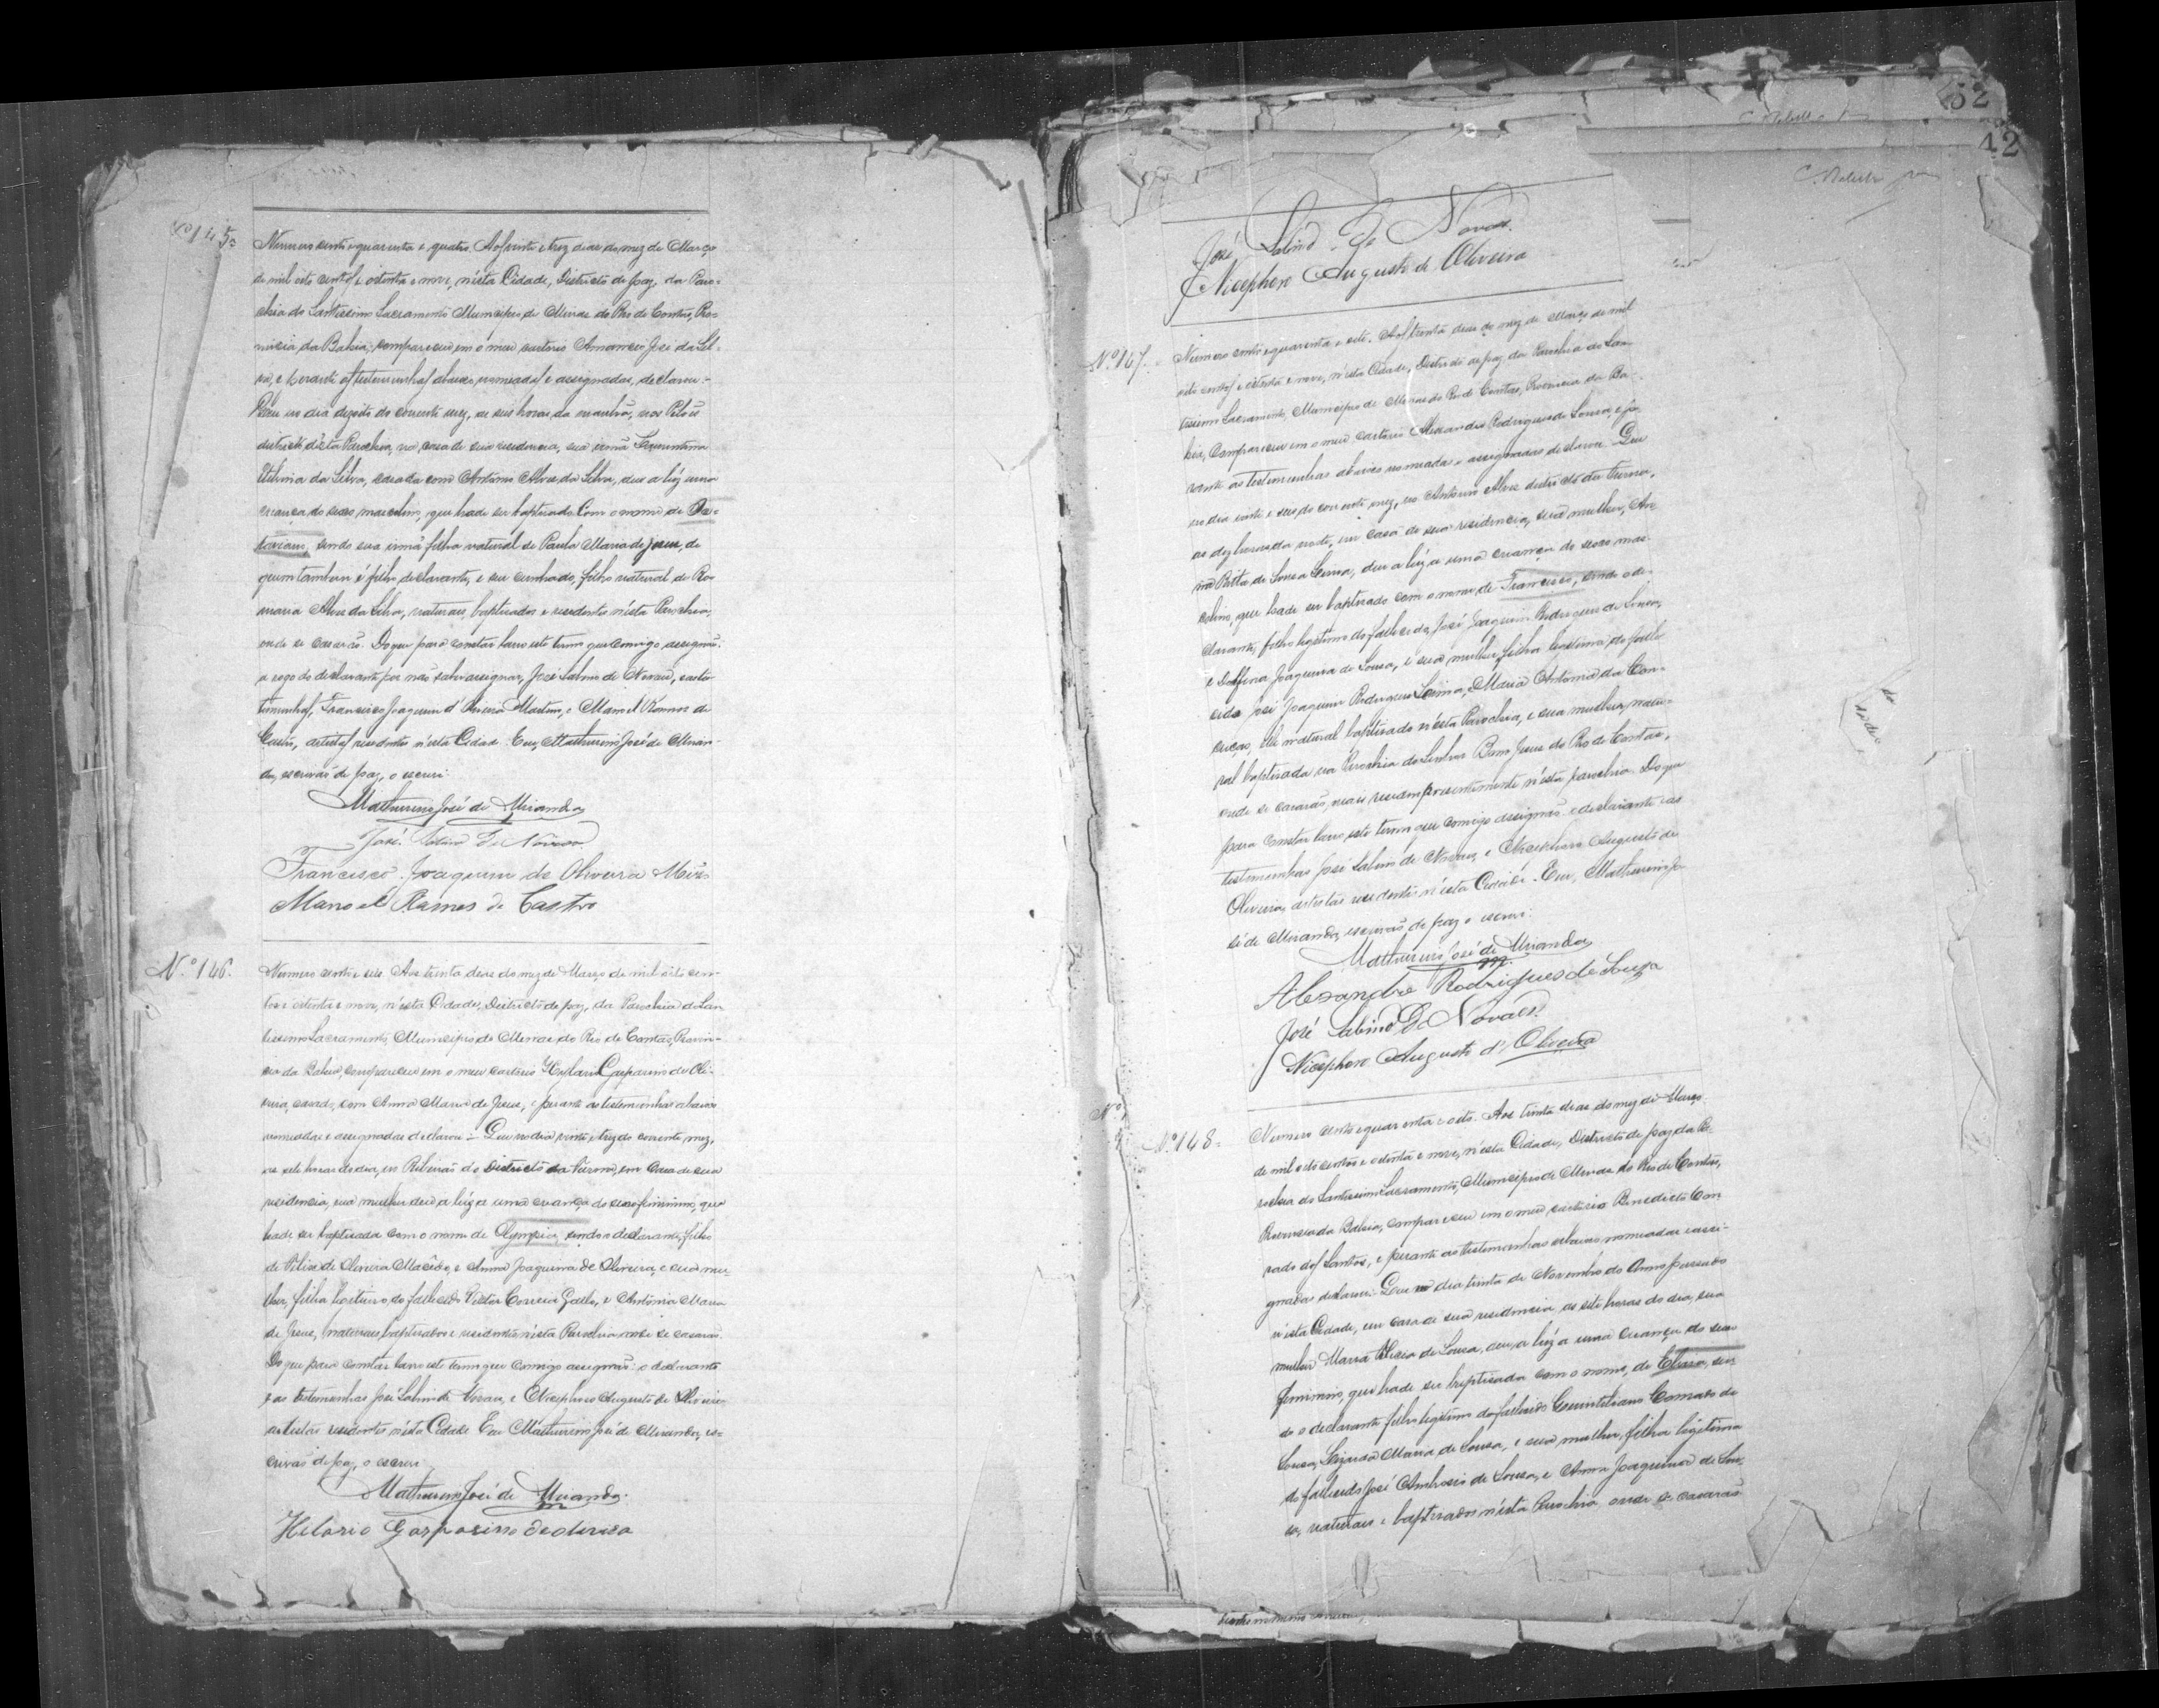 Nº 145=
Numero cento e quarenta e quatro. Aos vinte e trez dias do mez de Março
de mil oito centos e oitenta e nove, n'esta Cidade, Districto de paz, da Paro-
chia do Santissimo Sacramento Municipio de Minas do Rio de Contas, Pro-
vincia da Bahia, compareceu em o meu cartorio Amancio José da Sil-
va, e perante as testemunhas abaixo nomeadas e assignadas, declarou:-
Que no dia dezoito do corrente mez, as seis horas da manhã, nos Pilões
districto d'esta Parochia, na casa de sua residencia, sua irmã
da Silva, casada com Antonio Alves da Silva, deu a luz uma
criança do sexo masculino, que hade ser baptisado com o nome de Oc-
taviano, sendo sua irmã filha natural de Paula Maria de Jesus, de
quem tambem é filho, declarante, e seu cunhado, filho natural de Ro-
maria Alves da Silva, naturaes, baptisados e residentes n'esta Parochia,
onde se casarão. Do que para constar lavro este termo que comigo assignão:
a rogo do declarante por não saber assignar, José Sabino de Novaes, e as tes-
temunhas, Francisco Joaquim d'Oliveira Martins, e Manoel Ramos de
Castro, artistas residentes n'esta Cidade. Eu, Mathurino José de Miran-
da, escrivão de paz, o escrevi.
Mathurino José de Miranda
José Sabino De Novaes
Francisco Joaquim de Oliveira
Manoel Ramos de Castro
Nº 146.
Numero cento e seis. Aos trinta dias do mez de Março de mil oito cen-
tos e oitenta e nove, n'esta Cidade, Districto de paz, da Parochia do San-
tissimo Sacramento, Municipio de Minas do Rio de Contas, Provin-
cia da Bahia, compareceu em o meu cartorio Hylario Gasparino de Oli-
veira, casado, com Anna Maria de Jesus, e perante as testemunhas abaixo
nomeadas e assignadas declarou:- Que no dia vinte e trez do corrente mez,
as sete horas do dia, no Ribeirão do Districto da Furna, em Casa de sua
residencia, sua mulher deu a luz a uma criança do sexo feminino, que
hade ser baptisada com o nome de Olympia, sendo o declarante, filho
de Felix de Oliveira Macêdo, e Anna Joaquina de Oliveira, e sua mu-
lher, filha legitima do fallecido Victor Correia Gallo, e Antonia Maria
de Jesus, naturaes, baptisados e residentes n'esta Parochia onde se casarão.
Do que para constar lavro este termo que comigo assignão: o declarante
e as testemunhas José Sabino de Novaes, e Nicephoro Augusto de Oliveira
artistas residentes n'esta Cidade. Eu Mathurino José de Miranda, es-
crivão de paz, o escrevi.
Mathurino José de Miranda.
Hilario Gasparino de oliveira
52
42
José Sabino De Novaes.
Nicephoro Augusto de Oliveira
Nº 147.
Numero cento e quarenta e sete. Aos trinta dias do mez de Março de mil
oito centos e oitenta e nove, n'esta Cidade, Districto de paz da Parochia do San-
tissimo Sacramento, Municipio de Minas do Rio de Contas, Provincia da Ba-
hia, Compareceu em o meu cartorio Alexandre Rodrigues de Sousa, e pe-
rante as testemunhas abaixo nomeadas e assignadas declarou: Que
no dia vinte e seis do corrente mez, no Antonio Alves districto da Furna,
as dez horas da noite, em casa de sua residencia, sua mulher, An-
na Ritta de Sousa Lima, deu a luz a uma criança do sexo mas-
culino, que hade ser baptisado com o nome de Francisco, sendo o de-
clarante, filho legitimo do fallecido José Joaquim Rodrigues de Sousa,
e Delfina Joaquina de Sousa, e sua mulher filha legitima do falle-
cido José Joaquim Rodrigues Lima, e Maria Antonia da Con-
ceicao, elle natural baptisado n'esta Parochia, e sua mulher, natu-
ral baptisada na Parochia do Senhor Bom Jesus do Rio de Contas,
onde se casarão, mais residem presentemente n'esta parochia. Do que
para constar lavro este termo que comigo assignão o declarante e as
testemunhas José Sabino de Novaes, e Nicephoro Augusto de
Oliveira, artistas residentes n'esta Cidade. Eu, Mathurino Jo-
sé de Miranda, escrivão de paz o escrevi.
Mathurino José de Miranda
Alexandre Rodrigues de Souza
José Sabino De Novaes.
Nicephoro Augusto d'Oliveira
Nº 148=
Numero cento e quarenta e oito. Aos trinta dias do mez de Março
de mil oito centos e oitenta e nove, n'esta Cidade, Districto de paz da Pa-
rochia do Santissimo Sacramento, Municipio de Minas do Rio de Contas,
Provincia da Bahia, compareceu em o meu cartorio Benedicto Con-
rado dos Santos, e perante as testemunhas abaixo nomeadas e assi-
gnadas declarou: Que no dia trinta de Novembro do Anno passado
n'esta Cidade, em casa de sua residencia, as sete horas do dia, sua
mulher Maria de Sousa, deu a luz a uma criança do sexo
feminino, que hade ser baptisada com o nome, de sen-
do o declarante filho legitimo do fallecido Quintiliano Conrado de
Sousa, Maria de Sousa, e sua mulher, filha legitima
do fallecido José Ambrosio de Sousa, e Anna Joaquina de Sou-
sa, naturaes e baptisados n'esta Parochia onde se casarão